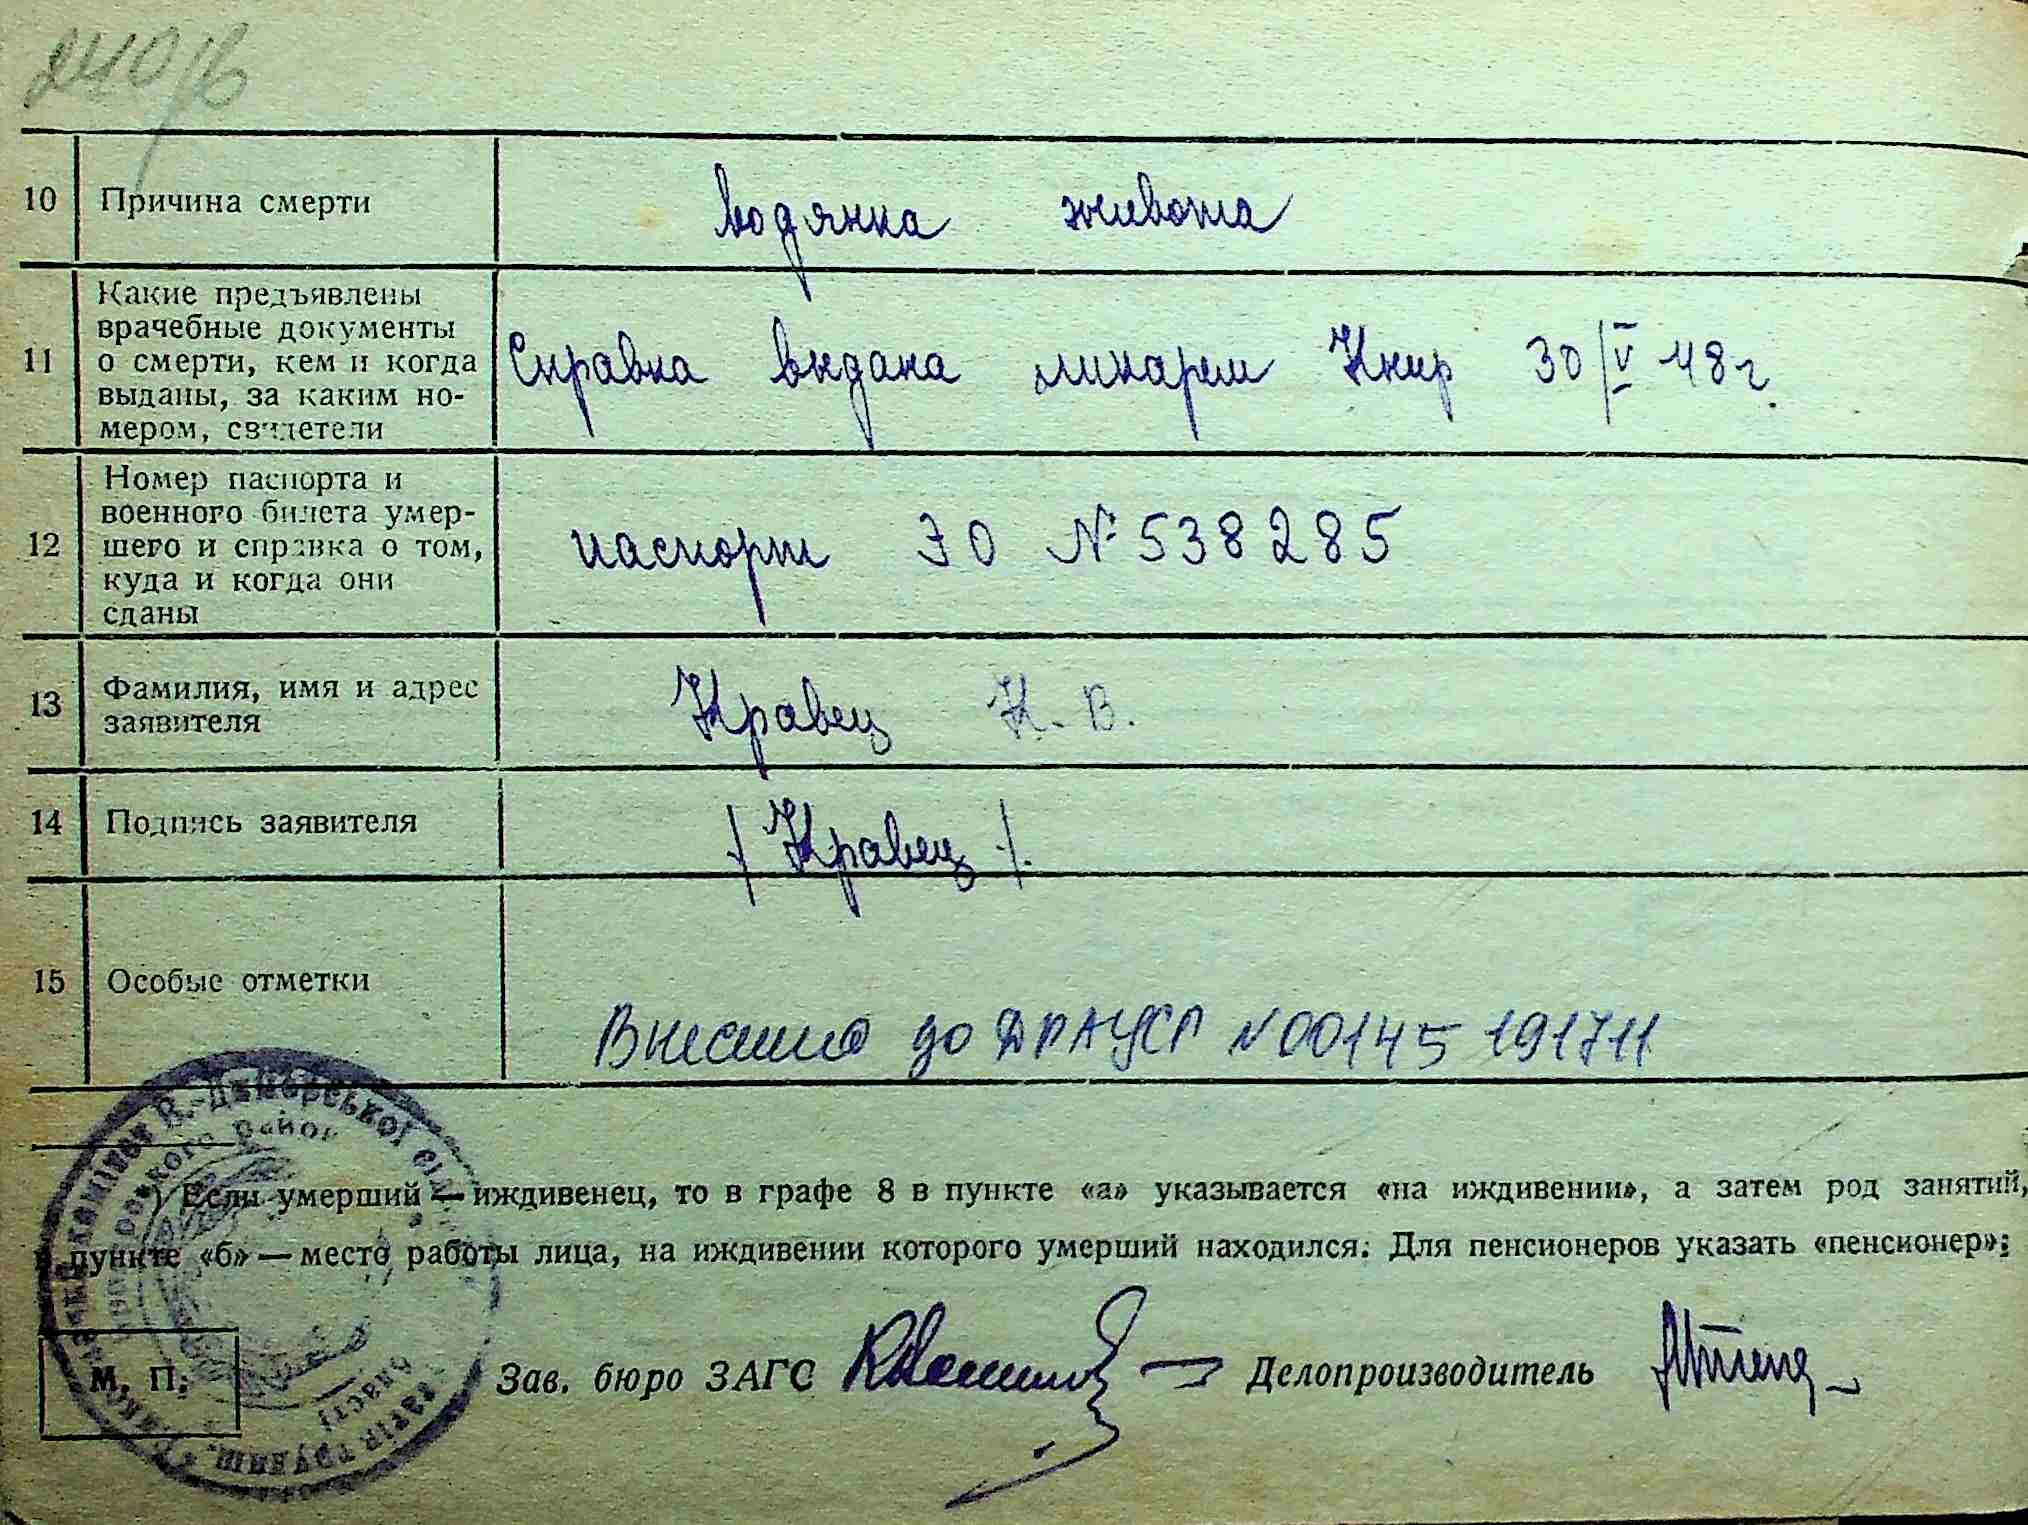 10 Причина смерти водянка живота
11 Какие предъявлены врачебные документы о смерти, кем и когда выданы, за каким но-мером, свидетели
Справка выдана ликарем Книр 30/V 48 г.
12 Номер паспорта и военного билета умер-шего и справка о том, куда и когда они сданы
паспорт ЭО № 538285
13 Фамилия, имя и адрес заявителя Кравец К. В.
14 Подпись заявителя / Кравец /.
15 Особые отметки
Внесено до ДРАЦСГ N 00145191711
) Если умерший — иждивенец, то в графе 8 в пункте «а» указывается «на иждивении», а затем род занятий,
пункте «б» — место работы лица, на иждивении которого умерший находился. Для пенсионеров указать «пенсионер»;
М. П. Зав. бюро ЗАГС Делопроизводитель